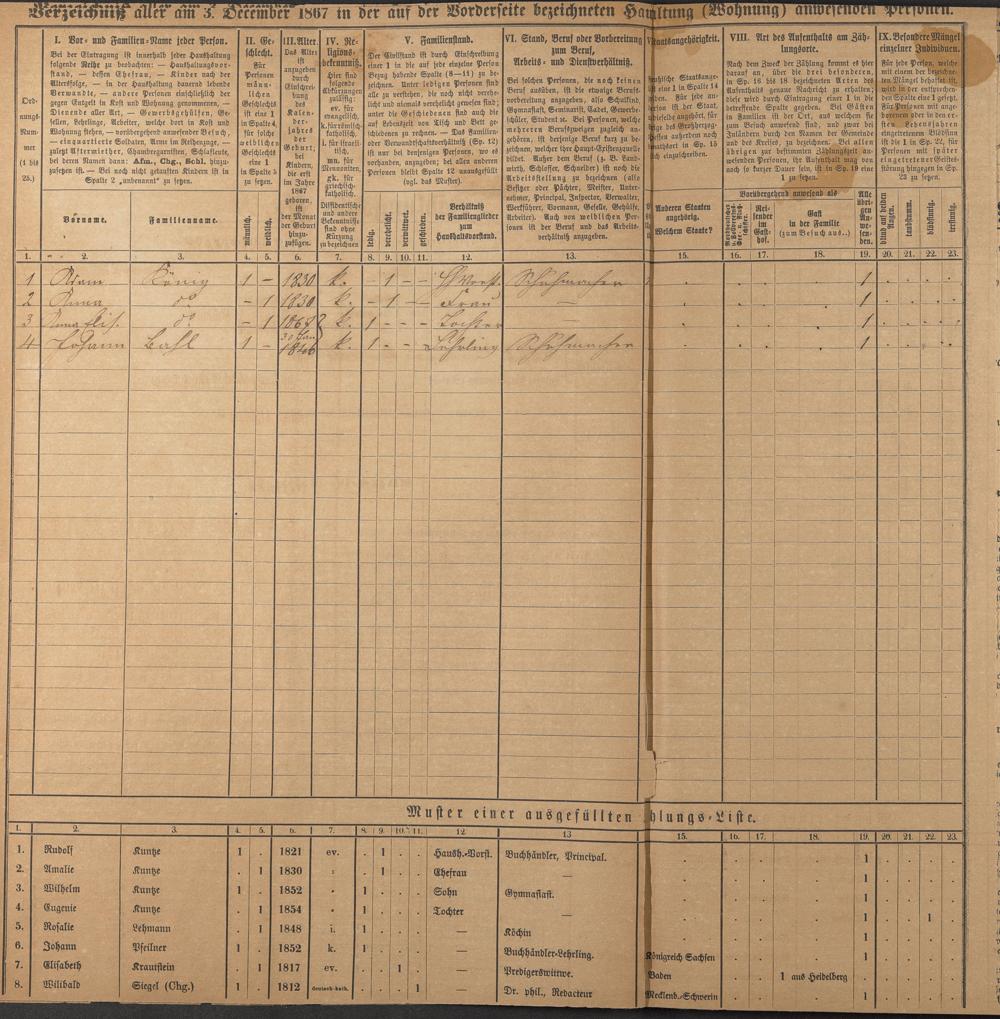 Verzeichniß aller am 3. December 1867 in der auf der Vorderseite bezeichneten Haushaltung (Wohnung) anwesenden Personen.
Ord-
nungs-
Num-
mer
(1 bis
25.)
I. Vor- und Familien-Name jeder Person.
Bei der Eintragung ist innerhalb jeder Haushaltung
folgende Reihe zu beobachten: — Haushaltungsvor-
stand, — dessen Ehefrau, — Kinder nach der
Altersfolge, — in der Haushaltung dauernd lebende
Verwandte, — andere Personen einschließlich der
gegen Entgelt in Kost und Wohnung genommenen, —
Dienende aller Art, — Gewerbsgehülfen, Ge-
sellen, Lehrlinge, Arbeiter, welche dort in Kost und
Wohnung stehen, — vorübergehend anwesender Besuch,
— einquartierte Soldaten, Arme im Reihenzuge, —
zuletzt Aftermiether, Chambregarnisten, Schlafleute,
bei deren Namen dann: Afm., Chg., Schl. hinzu-
zusetzen ist. — Bei noch nicht getauften Kindern ist in
Spalte 2 „unbenannt“ zu setzen.
Vorname.
Familienname.
II. Ge-
schlecht.
Für
Personen
männ-
lichen
Geschlechts
ist eine 1
in Spalte 4,
für solche
weiblichen
Geschlechts
eine 1
in Spalte 5
zu setzen.
männlich.
weiblich.
III. Alter.
Das Alter
ist
anzugeben
durch
Einschrei-
bung
des
Kalen-
der-
jahres
der
Geburt;
bei
Kindern,
die erst
im Jahre
1867
geboren,
ist
der Monat
der Geburt
hinzu-
zufügen.
IV. Re-
ligions-
bekenntniß.
Hier sind
folgende
Abkürzungen
zulässig:
ev. für
evangelisch,
k. für römisch-
katholisch,
i. für israeli-
tisch,
mn. für
Mennoniten,
gk. für
griechisch-
katholisch.
Dissidentische
und andere
Bekenntnisse
sind ohne
Kürzung
zu bezeichnen
V. Familienstand.
Der Civilstand ist durch Einschreibung
einer 1 in die auf jede einzelne Person
Bezug habende Spalte (8—11) zu be-
zeichnen. Unter ledigen Personen sind
alle zu verstehen, die noch nicht vereh-
licht und niemals verehelicht gewesen sind;
unter die Geschiedenen sind auch die
auf Lebenszeit von Tisch und Bett ge-
schiedenen zu rechnen. — Das Familien-
oder Verwandtschaftsverhältniß (Sp. 12)
ist nur bei denjenigen Personen, wo es
vorhanden, anzugeben; bei allen anderen
Personen bleibt Spalte 12 unausgefüllt
(vgl. das Muster).
ledig.
verehelicht.
verwittwet.
geschieden.
Verhältniß
der Familienglieder
zum
Haushaltsvorstand.
VI. Stand, Beruf oder Vorbereitung
zum Beruf,
Arbeits- und Dienstverhältniß.
Bei solchen Personen, die noch keinen
Beruf ausüben, ist die etwaige Berufs-
vorbereitung anzugeben, also Schulkind,
Gymnasiast, Seminarist, Cadet, Gewerbe-
schüler, Student ꝛc. Bei Personen, welche
mehreren Berufszweigen zugleich an-
gehören, ist derjenige Beruf kurz zu be-
zeichnen, welcher ihre Haupt-Existenzquelle
bildet. Außer dem Beruf (z. B. Land-
wirth, Schlosser, Schneider) ist noch die
Arbeitsstellung zu bezeichnen (also
Besitzer oder Pächter, Meister, Unter-
nehmer, Principal, Inspector, Verwalter,
Werkführer, Vormann, Geselle, Gehülfe,
Arbeiter). Auch von weiblichen Per-
sonen ist ihr Stand, Beruf und Arbeits-
verhältniß anzugeben.
Staatsangehörigkeit.
Anderen Staaten
angehörig.
Welchem Staate?
VIII. Art des Aufenthalts am Zäh-
lungsorte.
Nach dem Zweck der Zählung kommt es hier
darauf an, über die drei besonderen,
in Sp. 16 bis 18 bezeichneten Arten des
Aufenthalts genaue Nachricht zu erhalten;
diese wird durch Eintragung einer 1 in die
betreffende Spalte gegeben. Bei Gästen
in Familien ist der Ort, aus welchem sie
zum Besuch anwesend sind, und zwar bei
Inländern durch den Namen der Gemeinde
und des Kreises, zu bezeichnen. Bei allen
übrigen zur bestimmten Zählungszeit an-
wesenden Personen, ihr Aufenthalt mag von
noch so kurzer Dauer sein, ist in Sp. 19 eine
1 zu setzen.
Vorübergehend anwesend als
Rei-
sender
im
Gast-
hof.
Gast
in der Familie
(zum Besuch aus..)
Alle
übri-
gen
An-
we-
sen-
den.
IX. Besondere Mängel
einzelner Individuen.
Für jede Person, welche
mit einem der bezeichne-
ten Mängel behaftet ist,
wird in der entsprechen-
den Spalte eine 1 gesetzt.
blind auf beiden
Augen.
taubstumm.
blödsinnig.
irrsinnig.
1. 2. 3. 4. 5. 6. 7. 8. 9. 10. 11. 12. 13. 15. 16. 17. 18. 19. 20. 21. 22. 23.
1 Adam König 1 – 1830 k. – 1 – – H Vorst. Schuhmacher 1
2 Anna do – 1 1830 k. – 1 – – Frau — 1
3 Anna Elis. do – 1 k. 1 – – – Tochter — 1
4 Johann 1 – k. 1 – – – Lehrling Schuhmacher 1
Muster einer ausgefüllten Zählungs-Liste.
1. 2. 3. 4. 5. 6. 7. 8. 9. 10. 11. 12. 13 15. 16. 17. 18. 19. 20. 21. 22. 23.
1. Rudolf Kuntze 1 . 1821 ev. . 1 . . Haush.-Vorst. Buchhändler, Principal. 1
2. Amalie Kuntze . 1 1830 . 1 . . Ehefrau — 1
3. Wilhelm Kuntze 1 . 1852 1 . . . Sohn Gymnasiast. 1
4. Eugenie Kuntze . 1 1854 1 . . . Tochter — 1 1
5. Rosalie Lehmann . 1 1848 i. 1 . . . — Köchin 1
6. Johann Pfeilner 1 . 1852 k. 1 . . . — Buchhändler-Lehrling. Königreich Sachsen 1
7. Elisabeth Krautstein . 1 1817 ev. . . 1 . — Predigerswittwe. Baden 1 aus Heidelberg
8. Wilibald Siegel (Chg.) 1 . 1812 deutsch-kath. . . . 1 — Dr. phil., Redacteur Mecklenb.-Schwerin 1